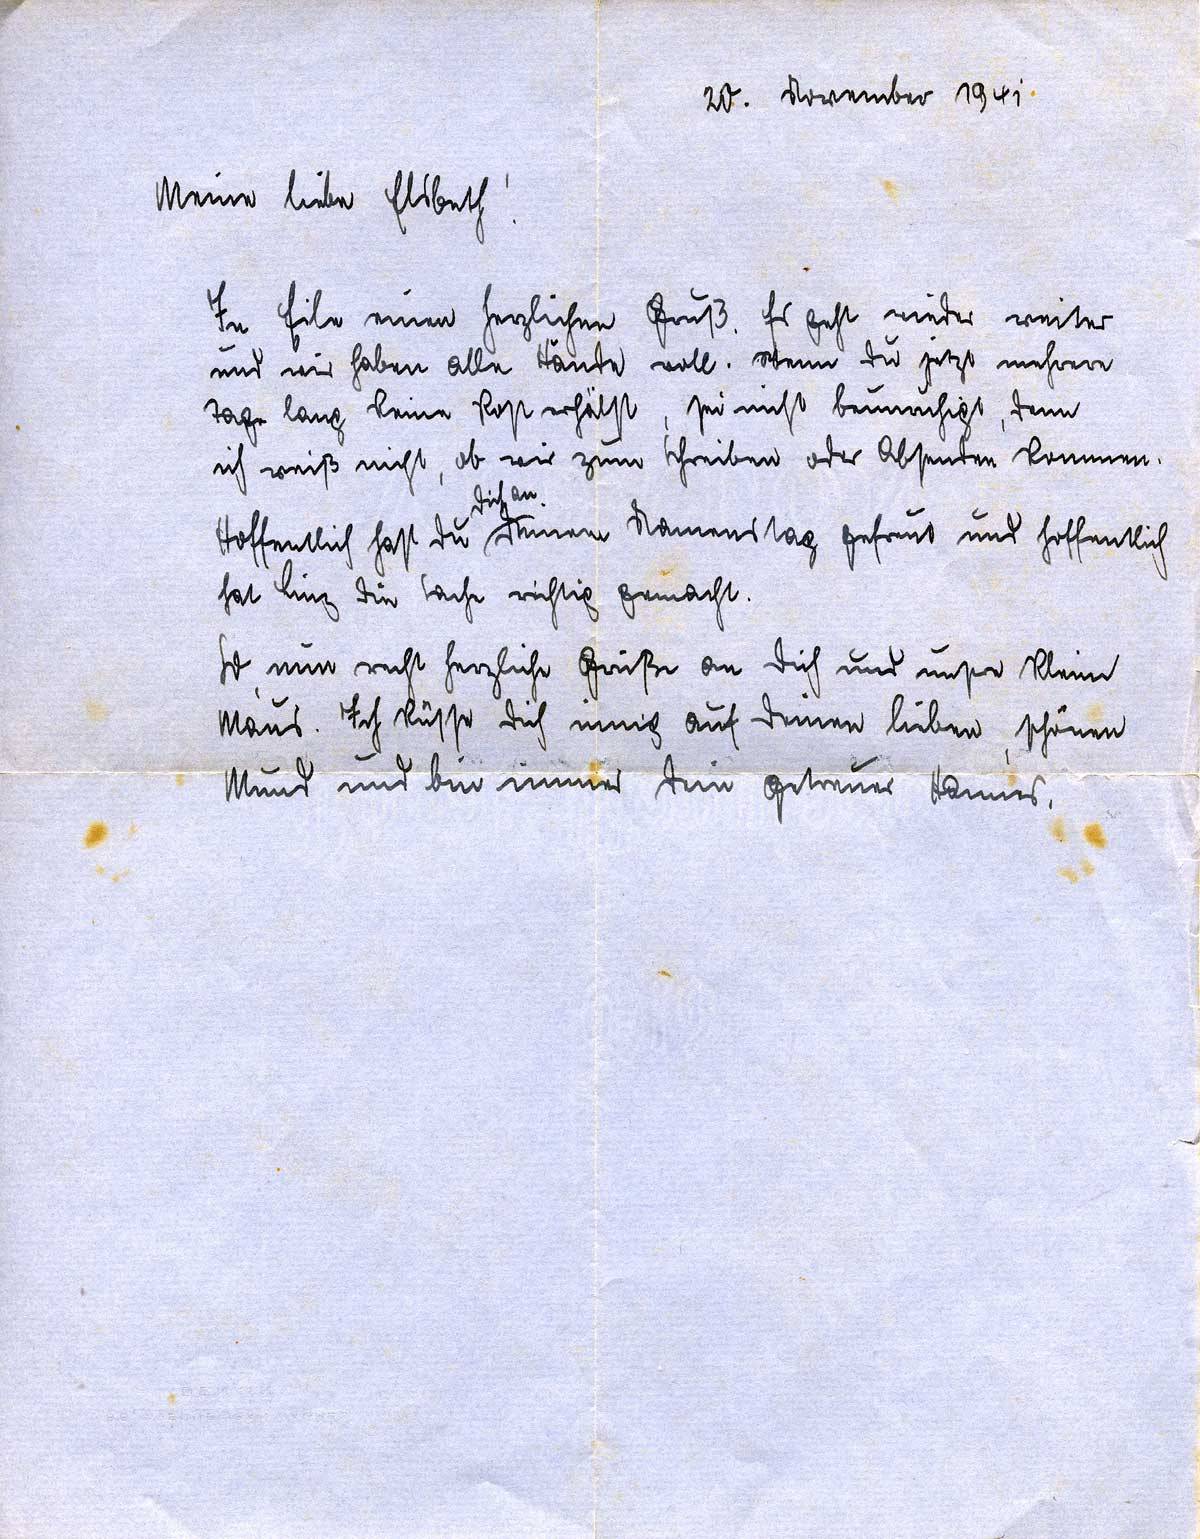 20. November 1941.
Meine liebe Elsbeth!
In Eile einen herzlichen Gruß. Es geht wieder weiter
und wir haben alle Hände voll. Wenn Du jetzt mehrere
Tage lang keine Post erhälst, sei nicht beunruhigt, denn
ich weiß nicht, ob wir zum Schreiben oder Absenden kommen.
Dich an
Hoffentlich hast Du Deinem Namenstag gefreut und hoffentlich
hat Linz die Sache richtig gemacht.
So, nun recht herzliche Grüße an Dich und unsre kleine
Maus. Ich küsse Dich innig auf Deinen lieben, schönen
Mund und bin immer Dein getreuer Hannes.